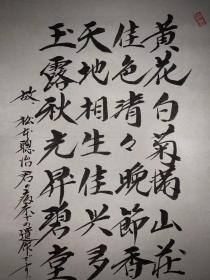 黄花白菊満山荘
佳色清々晩節香
天地相生佳興多
玉露秋光昇碧堂
松本聰治君の